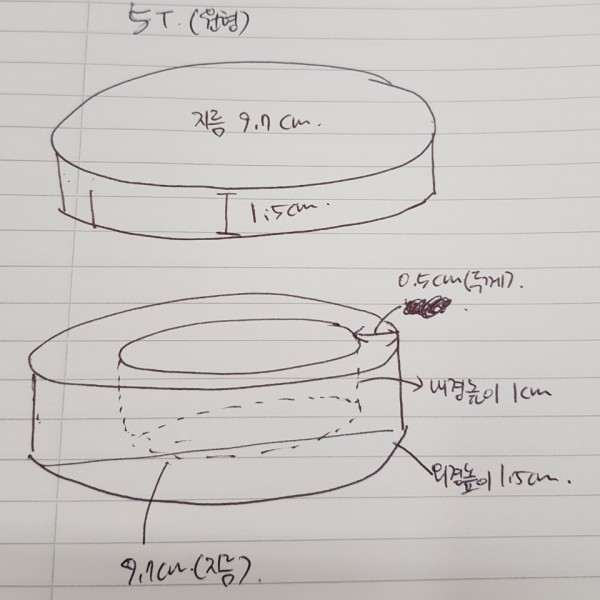 5T. (원형)
지름 9.7cm.
1.5cm.
0.5cm(두께).
내경높이 1cm
외경높이 1.5cm.
9.7cm.(지름).